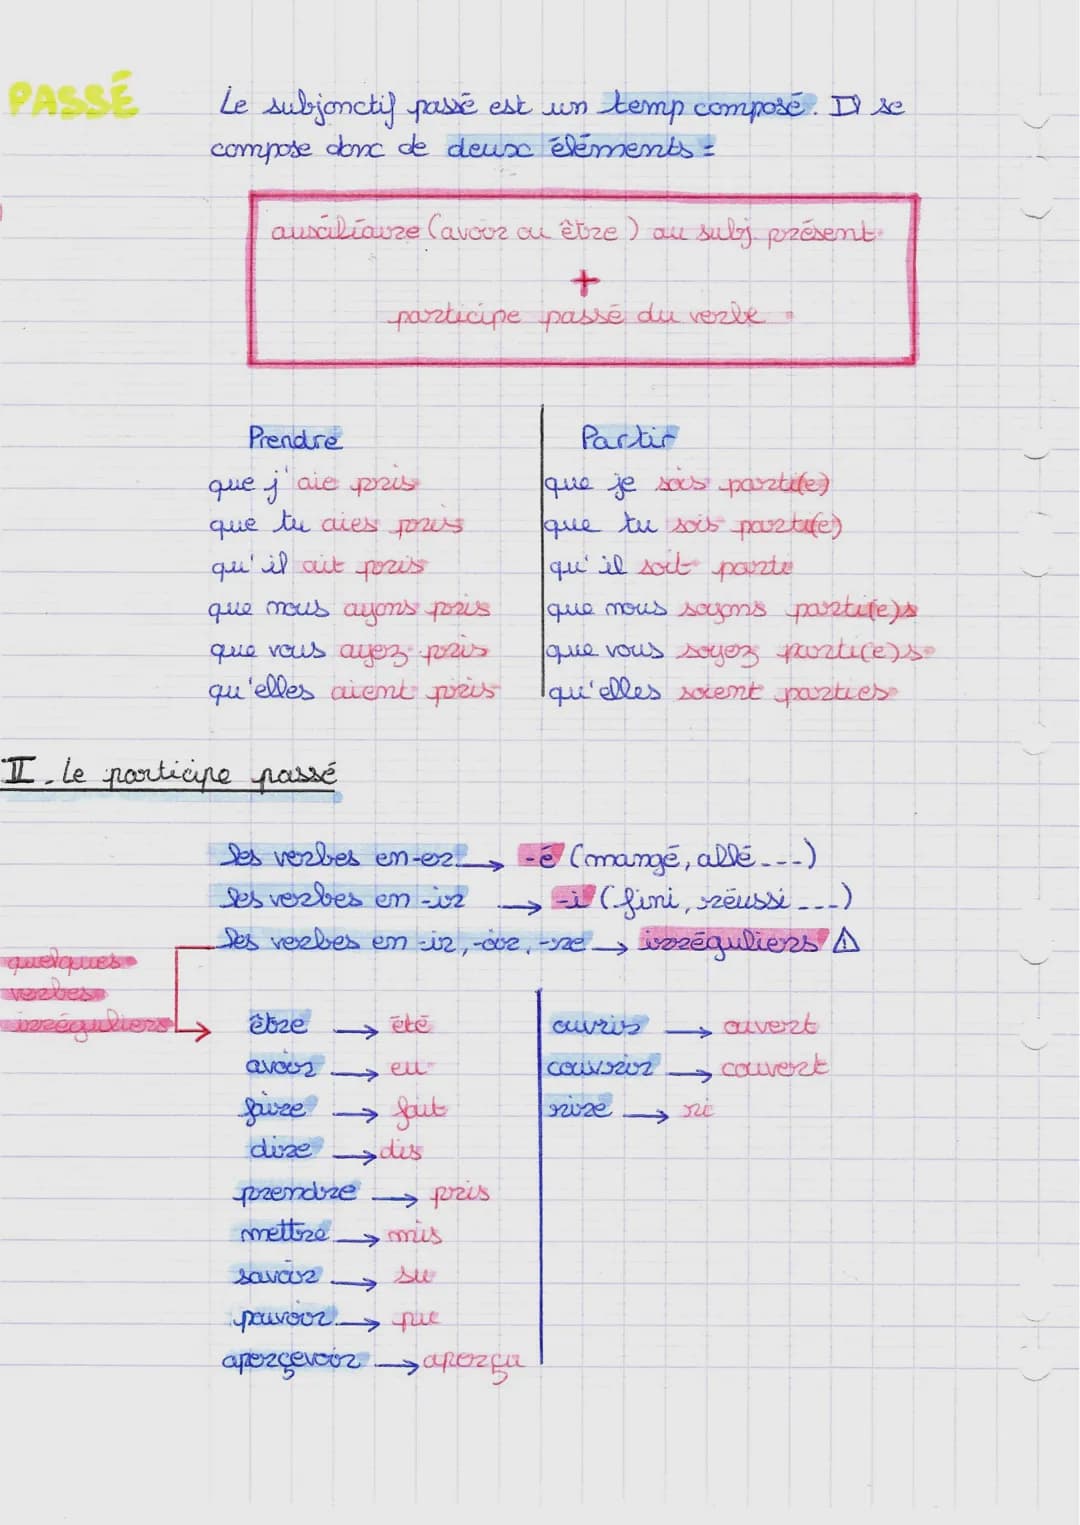 PASSÉ
Le subjonctif passé est un temp composé. Il se
compose donc de deux éléments :
auxiliaire (avoir ou être) au subj. présent
+
participe passé du verbe
Prendre
que j'aie pris
que tu aies pris
qu'il ait pris
que nous ayons pris
que vous ayez pris
qu'elles aient pris
Partir
que je sois parti(e)
que tu sois parti(e)
qu'il soit parti
que nous soyons parti(e)s
que vous soyez parti(e)s
qu'elles soient parties
II. Le participe passé
les verbes en -er → -é (mangé, allé...)
les verbes en -ir → -i (fini, réussi...)
les verbes en -ir, -oir, -re → irréguliers ⚠
quelques
verbes
irréguliers
être → été
avoir → eu
faire → fait
dire → dis
prendre → pris
mettre → mis
savoir → su
pouvoir → pu
aperçevoir → aperçu
ouvrir → ouvert
couvrir → couvert
rire → ri